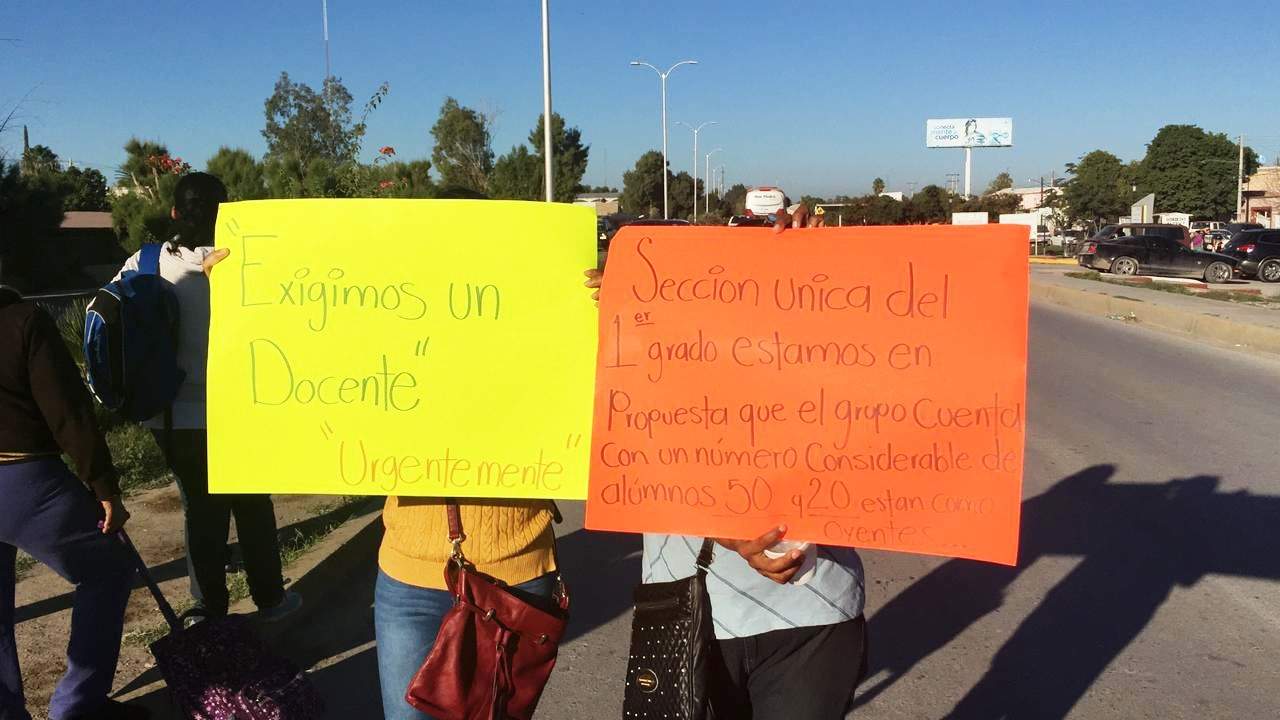 "Exigimos un
Docente"
"Urgentemente"
Sección unica del
1er grado estamos en
Propuesta que el grupo Cuenta
Con un número Considerable de
alúmnos 50 y 20 estan como
oyentes...
conecta
mente y
cuerpo